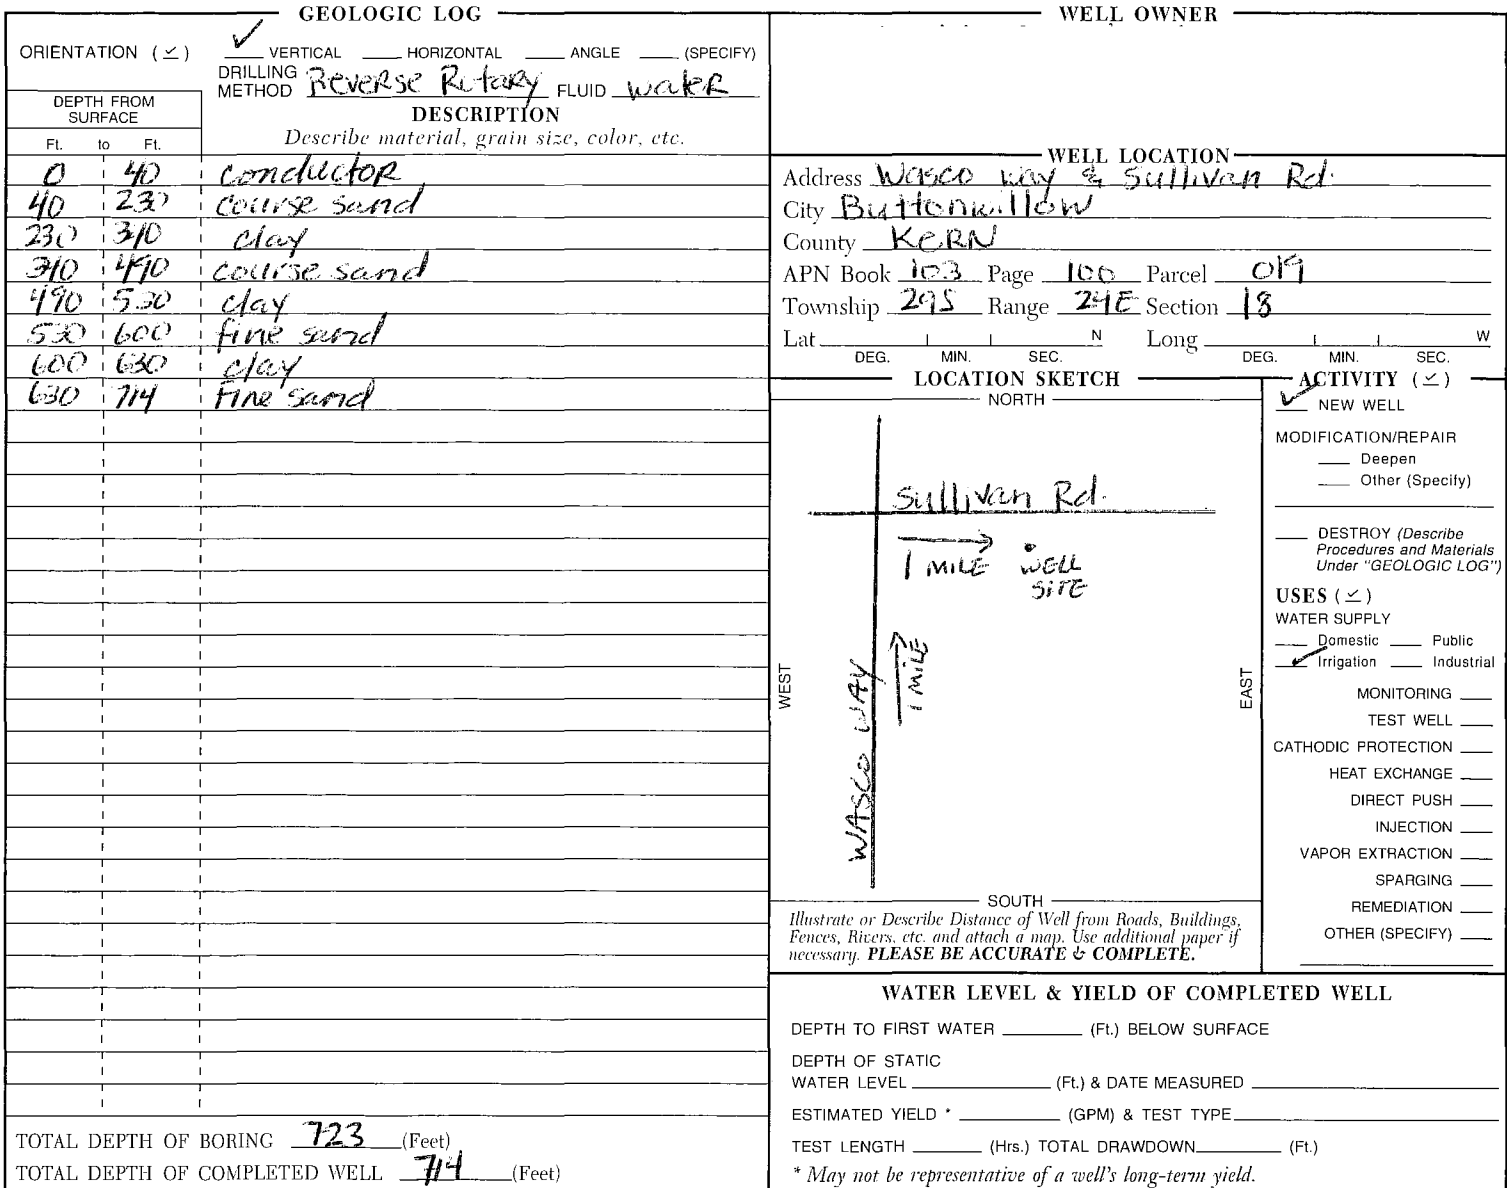 GEOLOGIC LOG
ORIENTATION (✓) ✓ VERTICAL ____ HORIZONTAL ____ ANGLE ____ (SPECIFY)
DRILLING METHOD Reverse Rotary FLUID water
DEPTH FROM SURFACE
Ft. to Ft.
DESCRIPTION
Describe material, grain size, color, etc.
0 40 conductor
40 230 course sand
230 340 clay
340 490 course sand
490 530 clay
530 600 fine sand
600 630 clay
630 714 Fine sand
TOTAL DEPTH OF BORING 723 (Feet)
TOTAL DEPTH OF COMPLETED WELL 714 (Feet)
WELL OWNER
WELL LOCATION
Address Wasco way & Sullivan Rd.
City Buttonwillow
County KERN
APN Book 103 Page 100 Parcel 019
Township 29S Range 24E Section 18
Lat N Long W
DEG. MIN. SEC. DEG. MIN. SEC.
LOCATION SKETCH
NORTH
Sullivan Rd.
1 MILE WELL SITE
1 MILE
WASCO WAY
WEST
EAST
SOUTH
Illustrate or Describe Distance of Well from Roads, Buildings,
Fences, Rivers, etc. and attach a map. Use additional paper if
necessary. PLEASE BE ACCURATE & COMPLETE.
ACTIVITY (✓)
✓ NEW WELL
MODIFICATION/REPAIR
____ Deepen
____ Other (Specify)
____ DESTROY (Describe
Procedures and Materials
Under "GEOLOGIC LOG")
USES (✓)
WATER SUPPLY
____ Domestic ____ Public
✓ Irrigation ____ Industrial
MONITORING ____
TEST WELL ____
CATHODIC PROTECTION ____
HEAT EXCHANGE ____
DIRECT PUSH ____
INJECTION ____
VAPOR EXTRACTION ____
SPARGING ____
REMEDIATION ____
OTHER (SPECIFY) ____
WATER LEVEL & YIELD OF COMPLETED WELL
DEPTH TO FIRST WATER ____ (Ft.) BELOW SURFACE
DEPTH OF STATIC
WATER LEVEL ____ (Ft.) & DATE MEASURED ____
ESTIMATED YIELD * ____ (GPM) & TEST TYPE ____
TEST LENGTH ____ (Hrs.) TOTAL DRAWDOWN ____ (Ft.)
* May not be representative of a well's long-term yield.